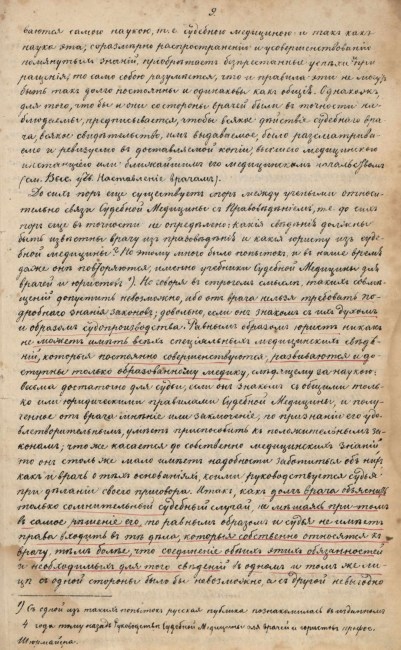 2.
ваются самою наукою, т.е. судебною медициною и такъ какъ
наука эта, соразмѣрно распространенію и усовершенствованію
помянутыхъ знаній, пріобрѣтаетъ безпрестанные успѣхи
ращенія, то само собою разумѣется, что и правила эти не могутъ
быть такъ долго постоянны и одинаковы какъ общія. Однакожъ
для того, чтобы и они со стороны врачей были въ точности на-
блюдаемы, предписывается, чтобы всякое дѣйствіе судебнаго вра-
ча, всякое свидѣтельство, имъ выдаваемое, было разсматривае-
мо и ревизуемо въ доставляемой копіи, высшаго медицинскаго
мѣста или ближайшимъ его медицинскимъ начальствомъ
(см. Выс. утв. Наставленіе врачамъ).
До сихъ поръ еще существуетъ споръ между учеными относи-
тельно связи Судебной Медицины съ Правовѣдѣніемъ, т.е. до сихъ
поръ еще въ точности не опредѣлено: какія свѣдѣнія должны
быть извѣстны врачу изъ правовѣдѣнія и какія юристу изъ суде-
бной Медицины? По этому много было попытокъ, и въ наше время
даже онѣ повторяются, именно учебники Судебной Медицины для
врачей и юристовъ ¹). Но говоря въ строгомъ смыслѣ, такихъ совмѣ-
щеній допустить невозможно, ибо отъ врача нельзя требовать по-
дробнаго знанія законовъ; довольно, если онъ знакомъ съ ихъ духомъ
и образомъ судопроизводства. Равнымъ образомъ юристъ никакъ
не можетъ имѣть всѣхъ спеціальныхъ медицинскихъ свѣдѣ-
ній, которыя постоянно совершенствуются, развиваются и до-
ступны только образованному медику, слѣдящему за наукою.
Весьма достаточно для судьи, если онъ знакомъ съ общими толь-
ко или юридическими правилами Судебной Медицины, и полу-
ченное отъ врача мнѣніе или заключеніе, по признаніи его удо-
влетворительнымъ, умѣетъ приспособить къ положительнымъ за-
конамъ; что же касается до собственно медицинскихъ знаній
то онъ столь же мало имѣетъ надобности заботиться объ нихъ
какъ и врачъ о тѣхъ основаніяхъ, коими руководствуется судья
при дѣланіи своего приговора. Итакъ, какъ долгъ врача объяснить
только сомнительный судебный случай, не мѣшаясь притомъ
въ самое рѣшеніе его, то равнымъ образомъ и судья не имѣетъ
права входить въ тѣ дѣла, которыя собственно относятся къ
врачу, тѣмъ болѣе, что соединеніе обѣихъ этихъ обязанностей
и необходимыхъ для того свѣдѣній въ одномъ и томъ же ли-
цѣ съ одной стороны было бы невозможно, а съ другой невыгодно
¹) Съ одной изъ такихъ попытокъ русская публика познакомилась въ изданномъ
4 года тому назадъ Руководствѣ Судебной Медицины для врачей и юристовъ профес.
Шюрмайера.